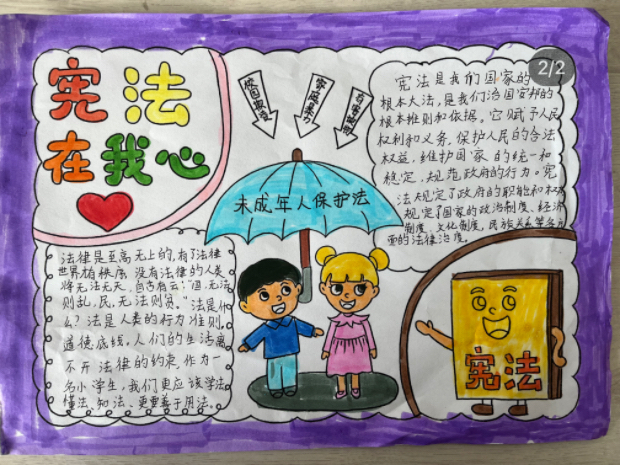 宪法
在我心
2/2
校园欺凌
家庭暴力
未成年人保护法
宪法是我们国家的
根本大法,是我们治国安邦的
根本准则和依据。它赋予人民
权利和义务,保护人民的合法
权益,维护国家的统一和
稳定,规范政府的行为。宪
法规定了政府的职能和权
规定了国家的政治制度、经济
制度、文化制度,民族关系等各方
面的法律治度。
法律是至高无上的,有了法律
世界才有秩序,没有法律的人类
将无法无天。自古有云:“国,无法
则乱,民,无法则贫。”法是什
么?法是人类的行为准则,
道德底线,人们的生活离
不开法律的约束。作为一
名小学生,我们更应该学法
懂法、知法、更要善于用法。
宪法